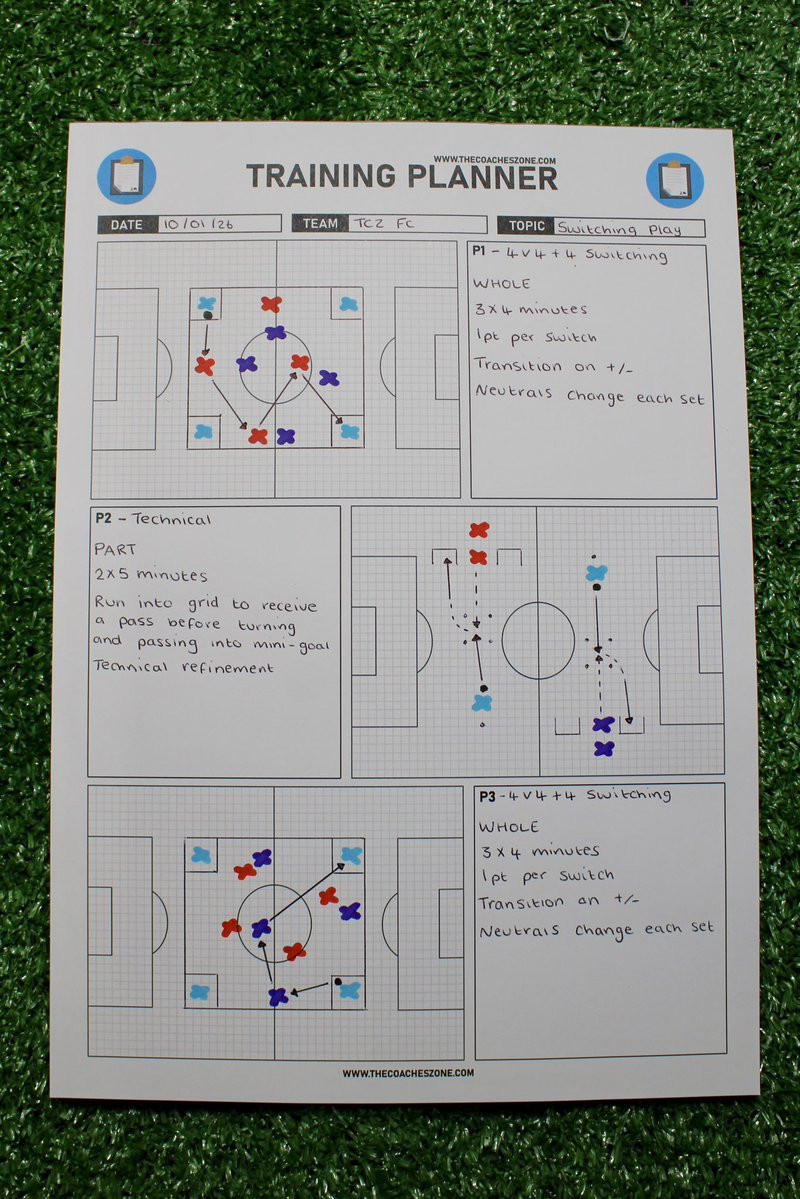 WWW.THECOACHESZONE.COM
TRAINING PLANNER
DATE 10/01/26 TEAM TCZ FC TOPIC Switching Play
P1 - 4v4+4 Switching
WHOLE
3x4 minutes
1pt per switch
Transition on +/-
Neutrals change each set
P2 - Technical
PART
2x5 minutes
Run into grid to receive
a pass before turning
and passing into mini-goal
Technical refinement
P3 - 4v4+4 Switching
WHOLE
3x4 minutes
1pt per switch
Transition on +/-
Neutrals change each set
WWW.THECOACHESZONE.COM